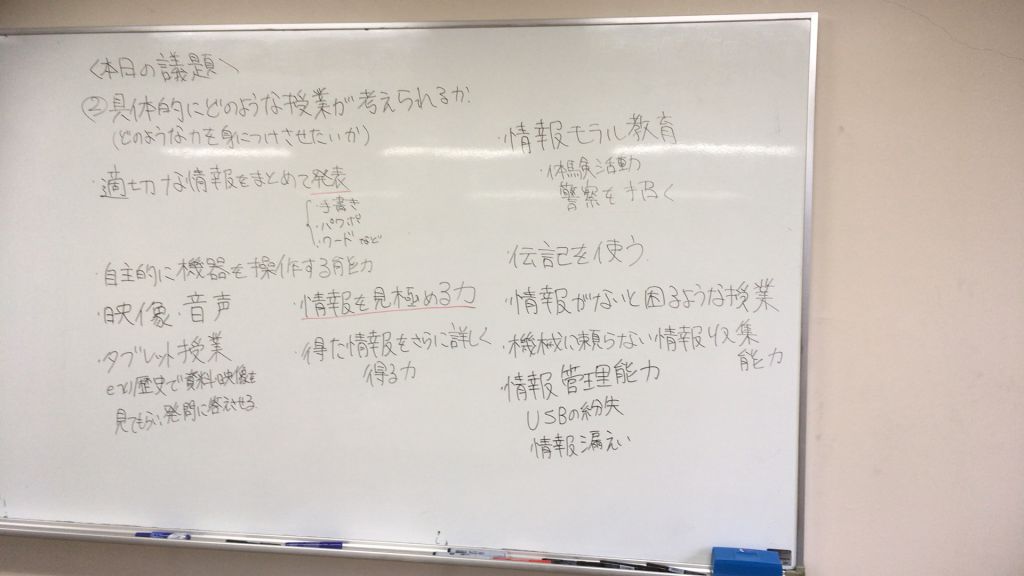 〈本日の議題〉
②具体的にどのような授業が考えられるか.
(どのような力を身につけさせたいか)
・適切な情報をまとめて発表
・手書き
・パワポ
・ワード など
・自主的に機器を操作する能力
・映像・音声
・タブレット授業
ex)歴史で資料・映像を
見てもらい発問に答えさせる
・情報を見極める力
・得た情報をさらに詳しく
得る力
・情報モラル教育
・体験活動
警察を招く
・伝記を使う.
・情報がないと困るような授業
・機械に頼らない情報収集
能力
・情報管理能力
USBの紛失
情報漏えい